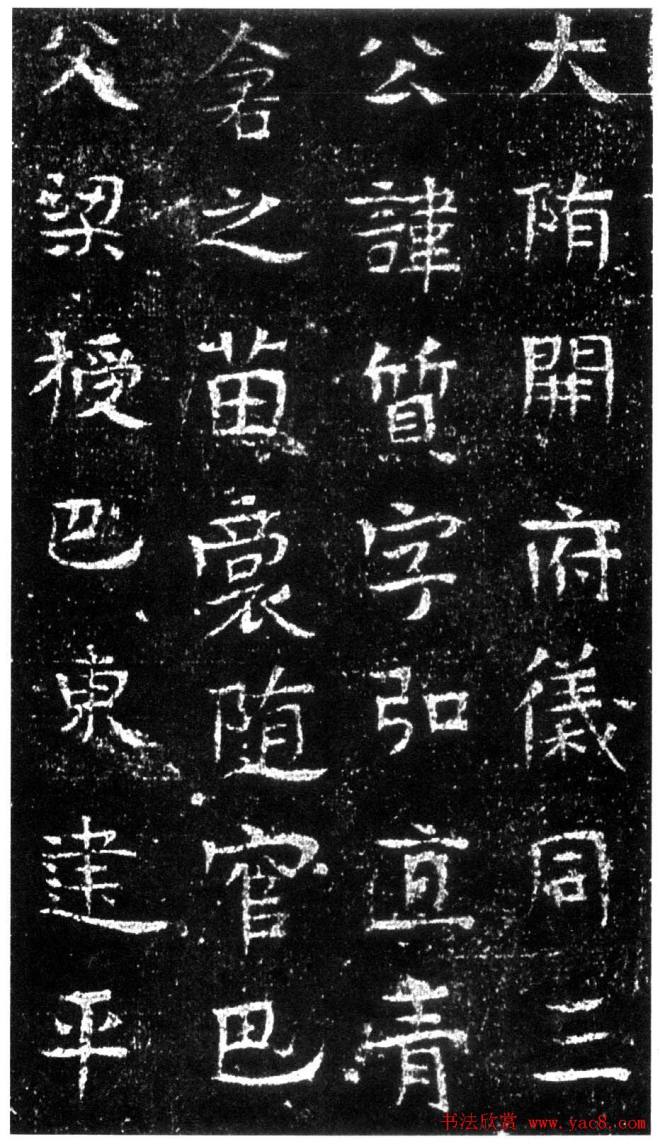 大陏開府儀同三
公諱質字弘直青
倉之苗裔随官巴
父梁授巴東建平
书法欣赏 www.yac8.com